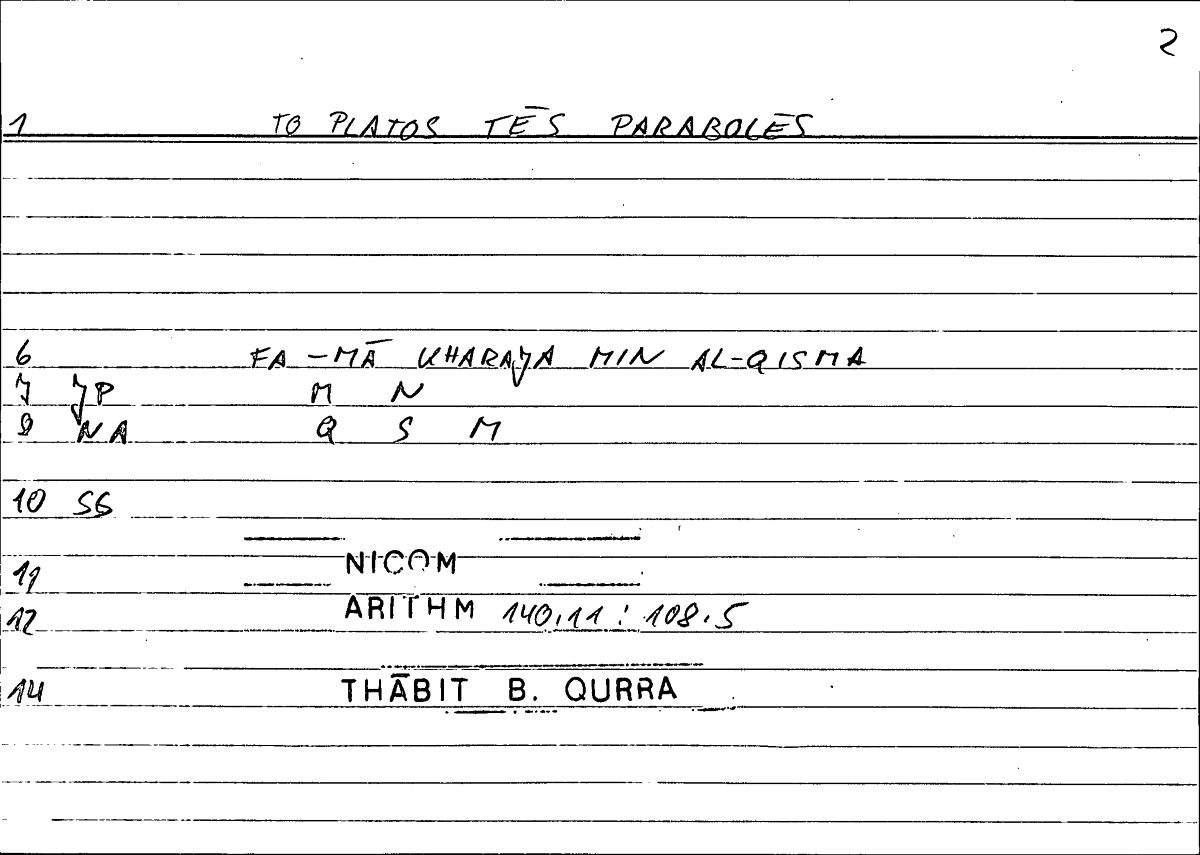 2
1 TO PLATOS TĒS PARABOLĒS
6 FA-MĀ KHARAJA MIN AL-QISMA
7 JP M N
8 NA Q S M
10 SG
11 NICOM
12 ARITHM 140.11 : 108.5
14 THĀBIT B. QURRA